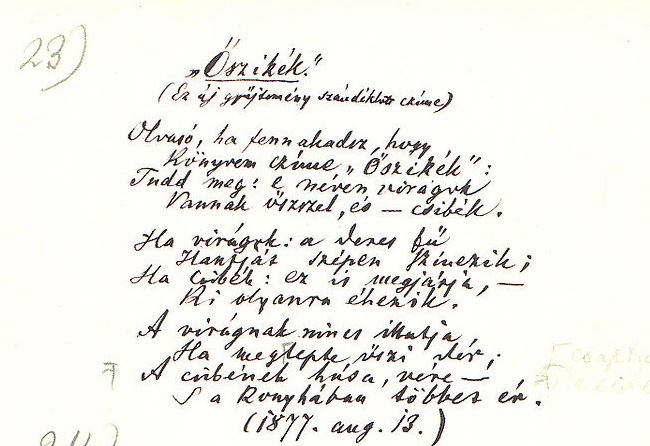 23)
„Őszikék."
(Ez új gyűjtemény szándéklott czíme)
Olvasó, ha fennakadsz, hogy
Könyvem czíme „Őszikék":
Tudd meg: e néven virágok
Vannak őszszel, és — csibék.
Ha virágok: a deres fű
Hantját szépen színezik;
Ha csibék: ez is megjárja, —
Ki olyanra éhezik.
A virágnak nincs illatja,
Ha megtepte őszi dér;
A csibének húsa, vére —
S a konyhában többet ér.
(1877. aug. 13.)